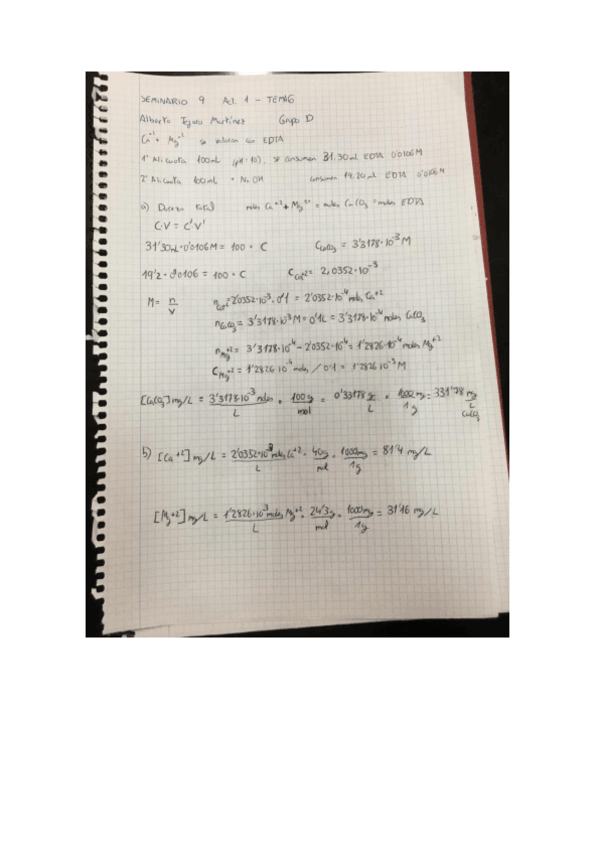 SEMINARIO 9 Act. 1 - TEMA6
Alberto Martínez Grupo D
Ca+2 + Mg+2 se valoran con EDTA
1ª Alicuota 100mL (pH=10), se consumen 31.30mL EDTA 0'0106M
2ª Alicuota 100mL + NaOH consumen 19.20mL EDTA 0'0106M
a) Dureza total moles Ca+2 + Mg+2 = moles CaCO3 = moles EDTA
C·V = C'V'
31'30mL·0'0106M = 100·C C CaCO3 = 3'3178·10^-3 M
19'2·0'0106 = 100·C C Ca+2 = 2,0352·10^-3
M = n/V n Ca+2 = 2'0352·10^-3·0'1 = 2'0352·10^-4 moles Ca+2
n CaCO3 = 3'3178·10^-3 M = 0'1L = 3'3178·10^-4 moles CaCO3
n Mg+2 = 3'3178·10^-4 - 2'0352·10^-4 = 1'2826·10^-4 moles Mg+2
C Mg+2 = 1'2826·10^-4 moles / 0'1 = 1'2826·10^-3 M
[CaCO3] mg/L = 3'3178·10^-3 moles/L · 100g/mol = 0'33178 g/L × 1000mg/1g = 331'78 mg/L CaCO3
b) [Ca+2] mg/L = 2'0352·10^-3 moles Ca+2/L · 40g/mol · 1000mg/1g = 81'4 mg/L
[Mg+2] mg/L = 1'2826·10^-3 moles Mg+2/L · 24'3g/mol · 1000mg/1g = 31'16 mg/L